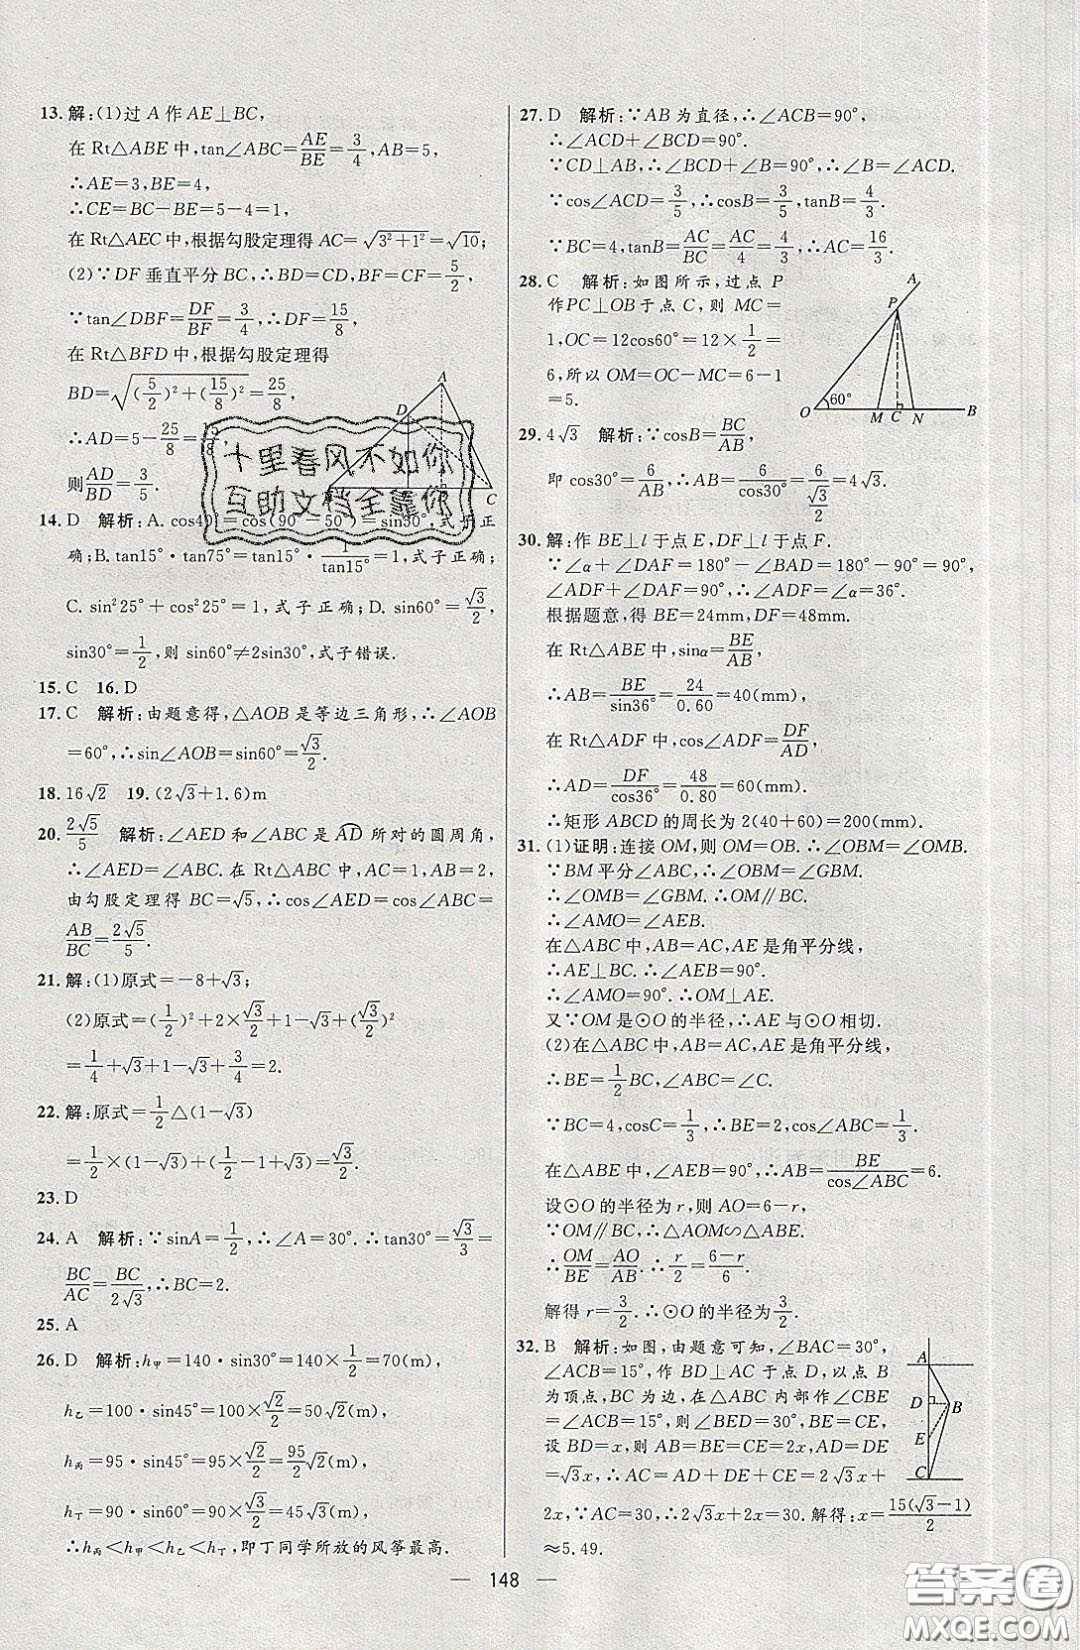 13.解:(1)过A作AE⊥BC,
在Rt△ABE中,tan∠ABC=AE/BE=3/4,AB=5,
∴AE=3,BE=4,
∴CE=BC-BE=5-4=1,
在Rt△AEC中,根据勾股定理得AC=√(3²+1²)=√10;
(2)∵DF垂直平分BC,∴BD=CD,BF=CF=5/2,
∵tan∠DBF=DF/BF=3/4,∴DF=15/8,
在Rt△BFD中,根据勾股定理得
BD=√((5/2)²+(15/8)²)=25/8,
∴AD=5-25/8=15/8,
则AD/BD=3/5.
A
D
C
十里春风不如你
互助文档全靠你
14.D 解析:A.cos40°=cos(90°-50°)=sin30°,式子正
确;B.tan15°·tan75°=tan15°·1/tan15°=1,式子正确;
C.sin²25°+cos²25°=1,式子正确;D.sin60°=√3/2,
sin30°=1/2,则sin60°≠2sin30°,式子错误.
15.C 16.D
17.C 解析:由题意得,△AOB是等边三角形,∴∠AOB
=60°,∴sin∠AOB=sin60°=√3/2.
18.16√2 19.(2√3+1.6)m
20.2√5/5 解析:∠AED和∠ABC是AD所对的圆周角,
∴∠AED=∠ABC.在Rt△ABC中,AC=1,AB=2,
由勾股定理得BC=√5,∴cos∠AED=cos∠ABC=
AB/BC=2√5/5.
21.解:(1)原式=-8+√3;
(2)原式=(1/2)²+2×√3/2+1-√3+(√3/2)²
=1/4+√3+1-√3+3/4=2.
22.解:原式=1/2△(1-√3)
=1/2×(1-√3)+(1/2-1+√3)=√3/2.
23.D
24.A 解析:∵sinA=1/2,∴∠A=30°.∴tan30°=√3/3=
BC/AC=BC/2√3,∴BC=2.
25.A
26.D 解析:h甲=140·sin30°=140×1/2=70(m),
h乙=100·sin45°=100×√2/2=50√2(m),
h丙=95·sin45°=95×√2/2=95/2√2(m),
h丁=90·sin60°=90×√3/2=45√3(m),
∴h丙<h甲<h乙<h丁,即丁同学所放的风筝最高.
27.D 解析:∵AB为直径,∴∠ACB=90°,
∴∠ACD+∠BCD=90°,
∵CD⊥AB,∴∠BCD+∠B=90°,∴∠B=∠ACD.
∵cos∠ACD=3/5,∴cosB=3/5,tanB=4/3.
∵BC=4,tanB=AC/BC=AC/4=4/3,∴AC=16/3.
28.C 解析:如图所示,过点P
作PC⊥OB于点C,则MC=
1,OC=12cos60°=12×1/2=
6,所以OM=OC-MC=6-1
=5.
A
P
O 60° M C N B
29.4√3 解析:∵cosB=BC/AB,
即cos30°=6/AB,∴AB=6/cos30°=6/(√3/2)=4√3.
30.解:作BE⊥l于点E,DF⊥l于点F.
∵∠α+∠DAF=180°-∠BAD=180°-90°=90°,
∠ADF+∠DAF=90°,∴∠ADF=∠α=36°.
根据题意,得BE=24mm,DF=48mm.
在Rt△ABE中,sinα=BE/AB,
∴AB=BE/sin36°=24/0.60=40(mm),
在Rt△ADF中,cos∠ADF=DF/AD,
∴AD=DF/cos36°=48/0.80=60(mm).
∴矩形ABCD的周长为2(40+60)=200(mm).
31.(1)证明:连接OM,则OM=OB.∴∠OBM=∠OMB.
∵BM平分∠ABC,∴∠OBM=∠GBM.
∴∠OMB=∠GBM.∴OM∥BC.
∴∠AMO=∠AEB.
在△ABC中,AB=AC,AE是角平分线,
∴AE⊥BC.∴∠AEB=90°.
∴∠AMO=90°.∴OM⊥AE.
又∵OM是⊙O的半径,∴AE与⊙O相切.
(2)在△ABC中,AB=AC,AE是角平分线,
∴BE=1/2BC,∠ABC=∠C.
∵BC=4,cosC=1/3,∴BE=2,cos∠ABC=1/3.
在△ABE中,∠AEB=90°,∴AB=BE/cos∠ABC=6.
设⊙O的半径为r,则AO=6-r,
∵OM∥BC,∴△AOM∽△ABE.
∴OM/BE=AO/AB.∴r/2=(6-r)/6.
解得r=3/2.∴⊙O的半径为3/2.
32.B 解析:如图,由题意可知,∠BAC=30°,
∠ACB=15°,作BD⊥AC于点D,以点B
为顶点,BC为边,在△ABC内部作∠CBE
=∠ACB=15°,则∠BED=30°,BE=CE,
设BD=x,则AB=BE=CE=2x,AD=DE
=√3x,∴AC=AD+DE+CE=2√3x+
2x,∵AC=30,∴2√3x+2x=30.解得:x=15(√3-1)/2
≈5.49.
A
D
B
E
C
— 148 —
答案圈
MXQE.COM